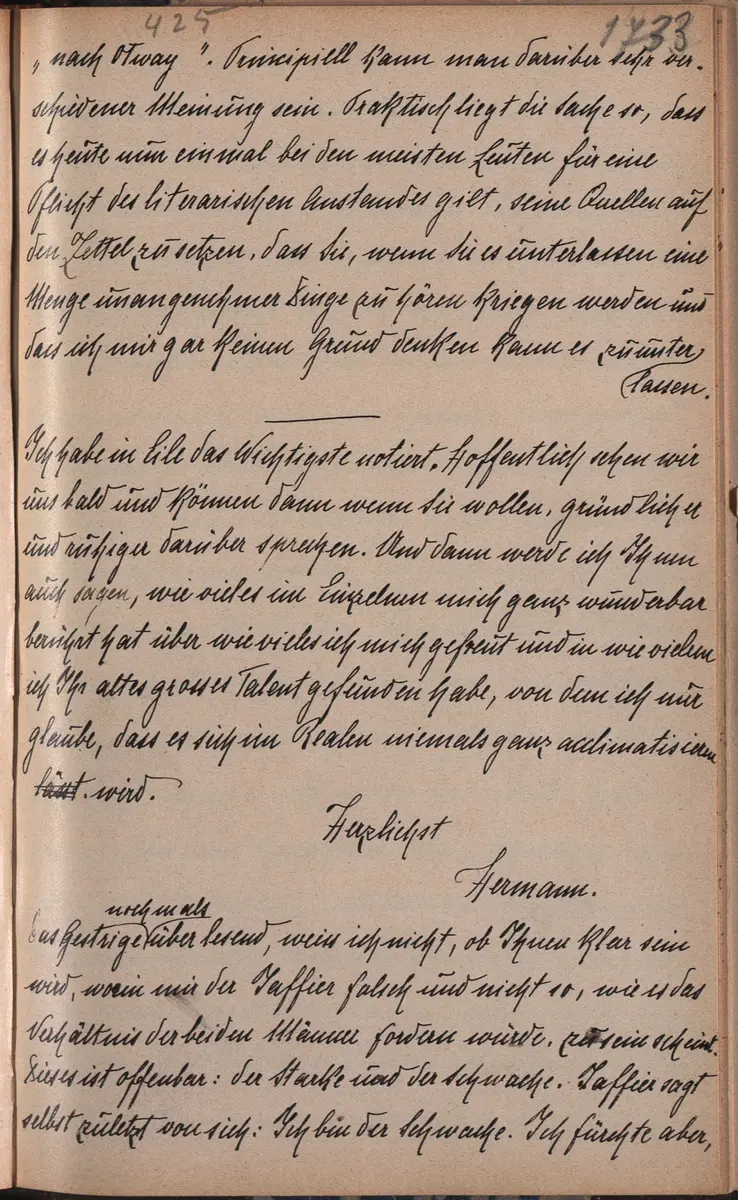 425 1733
„nach Otway”. Principiell kann man darüber sehr ver-
schiedener Meinung sein. Praktisch liegt die Sache so, dass
es heute nun einmal bei den meisten Leuten für eine
Pflicht des literarischen Anstandes gilt, seine Quellen auf
den Zettel zu setzen, dass Sie, wenn Sie es unterlassen eine
Menge unangenehmer Dinge zu hören kriegen werden und
dass ich mir gar keinen Grund denken kann es zu unter
lassen.
Ich habe in Eile das Wichtigste notiert. Hoffentlich sehen wir
uns bald und können dann wenn Sie wollen, gründlicher
und ruhiger darüber sprechen. Und dann werde ich Ihnen
auch sagen, wie vieles im Einzelnen mich ganz wunderbar
berührt hat über wie vieles ich mich gefreut und in wie vielem
ich Ihr altes grosses Talent gefunden habe, von dem ich nur
glaube, dass es sich im Realen niemals ganz acclimatisieren
lässt. wird.
Herzlichst
Hermann.
nochmals
Das Gestrige überlesend, weiss ich nicht, ob Ihnen klar sein
wird, worin mir der Jaffier falsch und nicht so, wie es das
Verhältnis der beiden Männer fordern würde, zu sein scheint.
Dieses ist offenbar: der Starke und der Schwache. Jaffier sagt
selbst zuletzt von sich: Ich bin der Schwache. Ich fürchte aber,